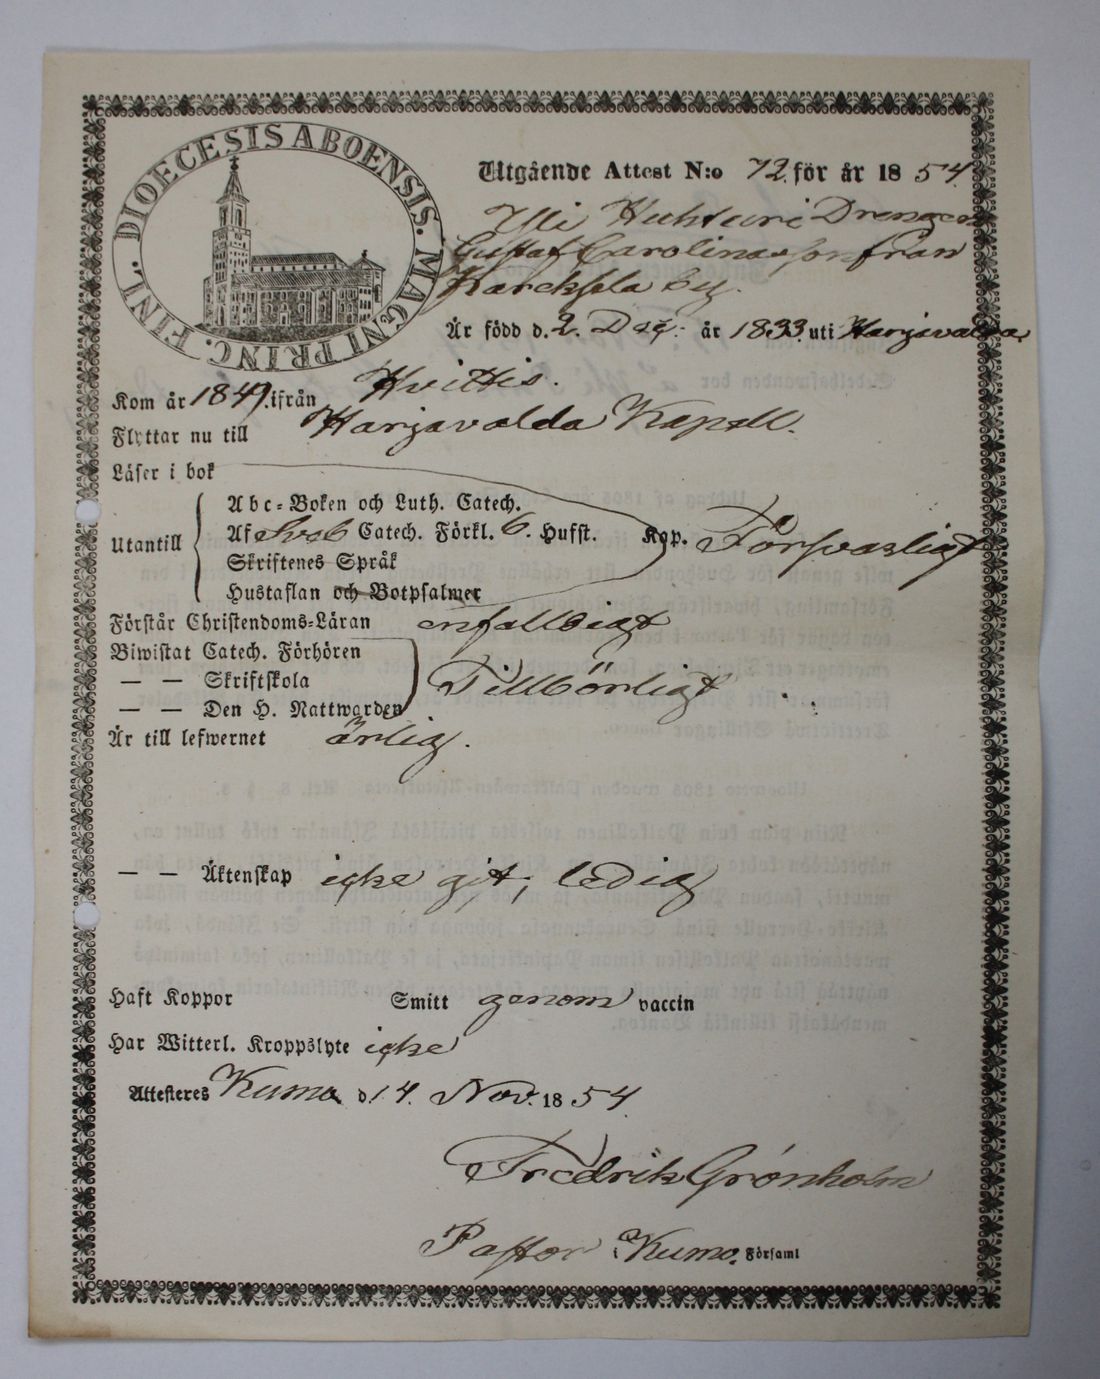 DIOECESIS ABOENSIS. MAGNI PRINC. FINL.
Utgående Attest N:o 72. för år 1854.
Yli Huhtari Drengen
Gustaf Carolinasson från
Karcksla by.
Är född d. 2. Dec: år 1833. uti Harjavalda
Kom år 1849. ifrån Hvittis.
Flyttar nu till Harjavalda Kapell.
Läser i bok
Abc-Boken och Luth. Catech.
Utantill Af Sveb Catech. Förkl. 6. Hufst. Kap. Försvarligt
Skriftenes Språk
Hustaflan och Botpsalmer
Förstår Christendoms-Läran enfaldigt
Biwistat Catech. Förhören
— — Skriftskola Tillbörligt
— — Den H. Nattwarden
Är till lefwernet ärlig.
— — Äktenskap icke gift, ledig
Haft Koppor Smitt genom vaccin
Har Witterl. Kroppslyte icke
Attesteres Kumo d. 14. Nov. 1854.
Fredrik Grönholm
Pastor i Kumo. Församl